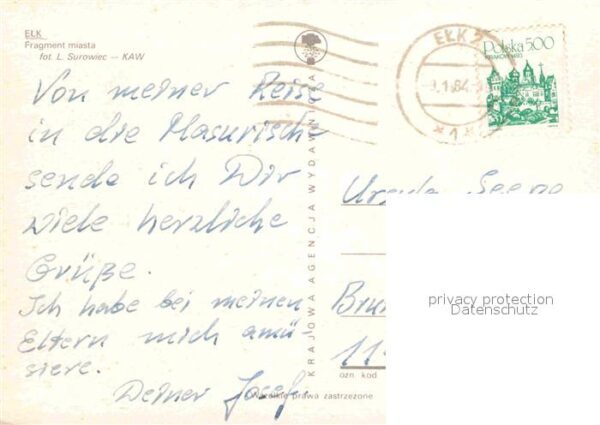 EŁK
Fragment miasta
fot. L. Surowiec — KAW
Von meiner Reise
in die Masurische
sende ich Dir
viele herzliche
Grüße.
Ich habe bei meinen
Eltern mich amü-
siere.
Deiner Josef.
KRAJOWA AGENCJA WYDAWNICZA
EŁK
1.84
*1*
Polska 500
Ursula
privacy protection
Datenschutz
11-
ozn kod
Wszelkie prawa zastrzeżone